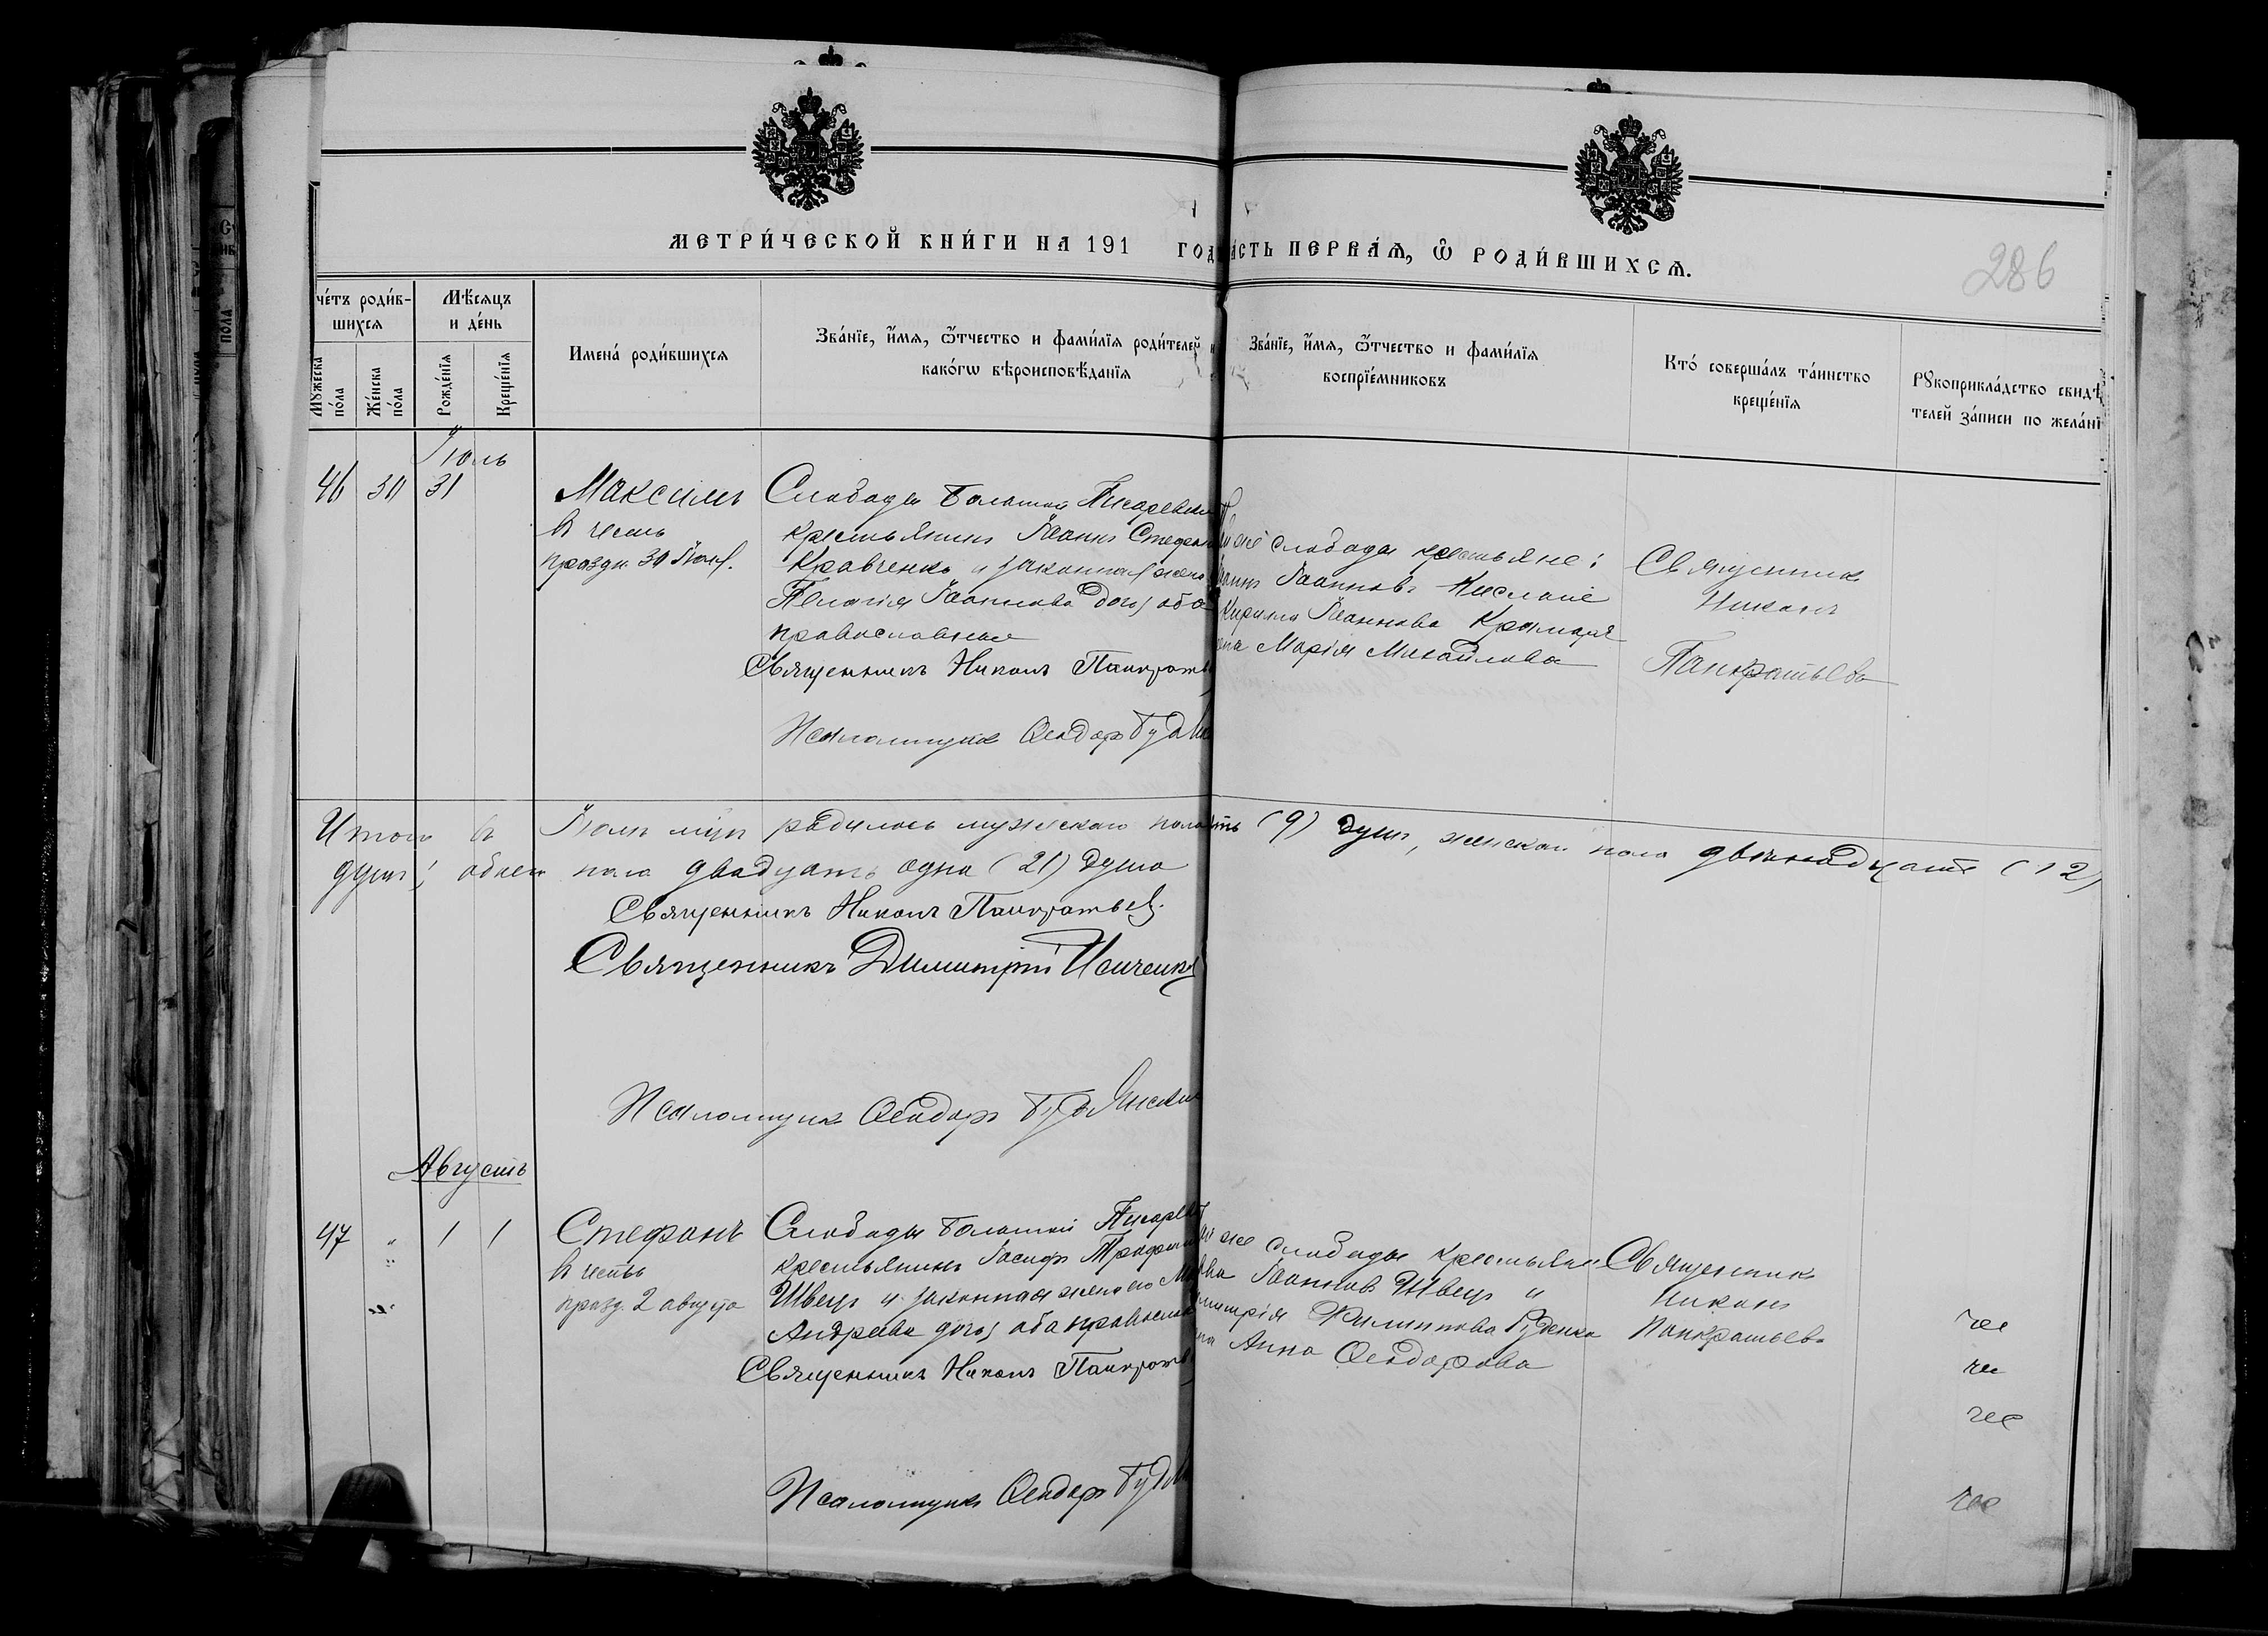 МЕТРИ́ЧЕСКОЙ КНИ́ГИ НА 191 ГОД
А́СТЬ ПЕРВА́Я, Ѡ҆ РОДИ́ВШИХСѦ.
286
че́тъ роди́в-
шихся
Мѣ́сяцъ
и де́нь
Мꙋ́жеска
по́ла
Же́нска
по́ла
Рожде́нїя
Креще́нїя
Имена́ роди́вшихся
Зва́нїе, и́мя, ѻ҆́тчество и фами́лїя роди́телей и
како́гѡ вѣроисповѣ́данїя
Зва́нїе, и́мя, ѻ҆́тчество и фами́лїя
воспрїе́мниковъ
Кто́ соверша́лъ та́инство
креще́нїя
Рꙋкоприкла́дство свидѣ
телей за́писи по жела́нї
Іюль
46 30 31
Максимъ
в честь
праздн. 30 Іюля.
Слободы Большой Писаревки
крестьянинъ Іоаннъ Стефан
Кравченко и законная жена
Пелагія Іоаннова оба
православные
Священникъ Никонъ Панкрать
Псаломщикъ Ѳеодоръ Будян
же слободы крестьяне:
Іоанновъ Кислый
Кирилла Іоаннова Крамаря
жена Марія Михайлова
Священникъ
Никонъ
Панкратьевъ
Итого в Іюлѣ мцѣ родилось мужескаго пола ть (9) душъ, женскаго пола двѣнадцать (12)
душъ; обоего пола двадцать одна (21) душа
Священникъ Никонъ Панкратьев.
Священникъ Димитрій Исиченко
Псаломщикъ Ѳеодоръ Будянский
Августъ
47 " 1 1
Стефанъ
в честь
празд. 2 августа
Слободы Большой Писарев
крестьянинъ Іосифъ Трофим
Швецъ и законная жена его
Андреева оба православ
Священникъ Никонъ Панкрат
Псаломщикъ Ѳеодоръ Будян
же слободы крестьяне
Іоанновъ Швецъ и
митрія Филиппова Руденка
на Анна Ѳеодорова
Священникъ
Никонъ
Панкратьевъ